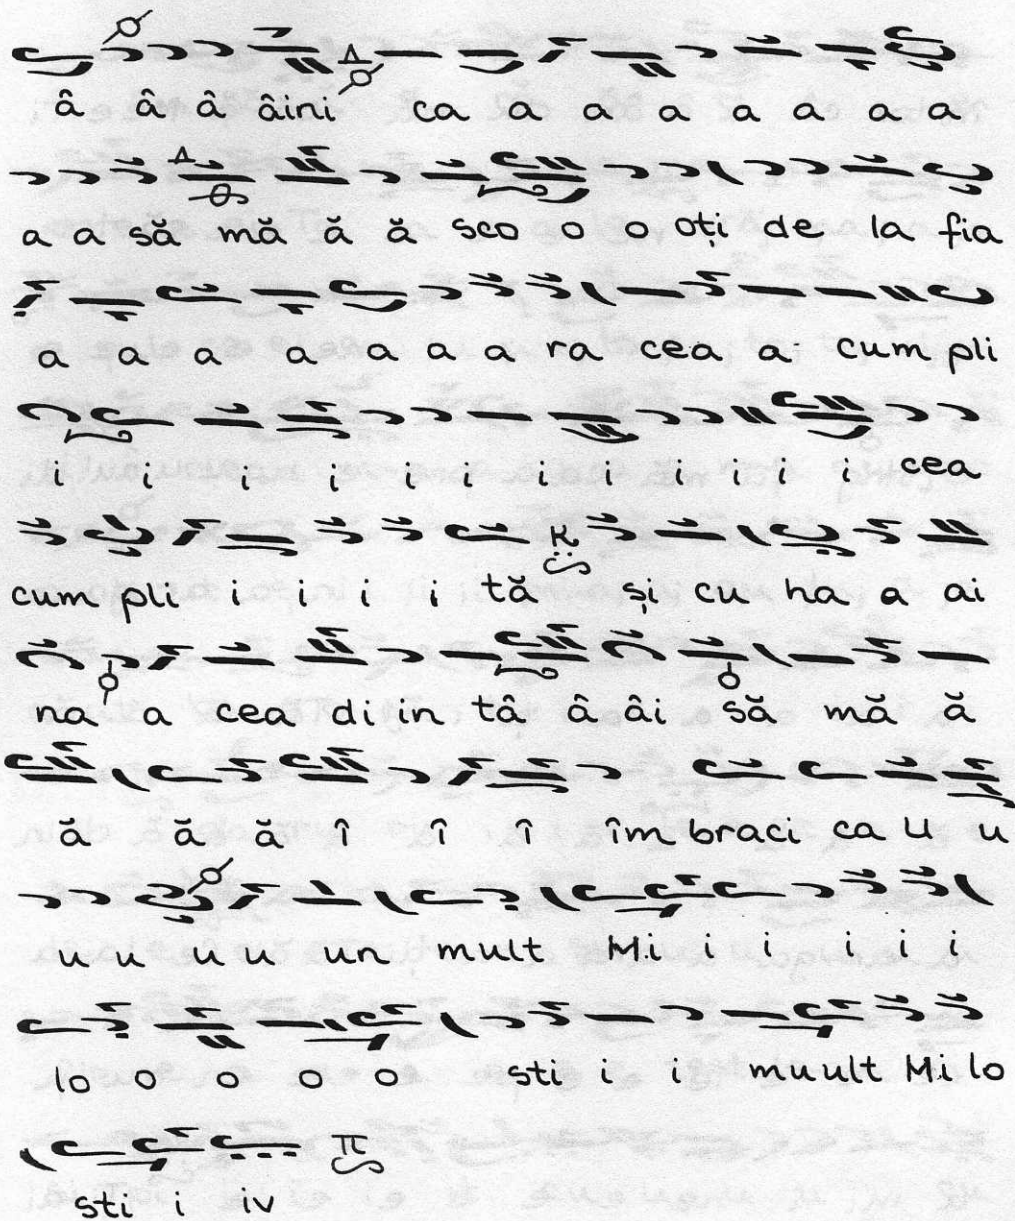 â â â âini ca a a a a a a a
a a să mă ă ă sco o o oți de la fia
a a a a a a a ra cea a cum pli
i i i i i i i i i i i cea
cum pli i i i i tă și cu ha a ai
na a cea di in tâ â âi să mă ă
ă ă ă î î î îm braci ca u u
u u u u un mult Mi i i i i i
lo o o o o sti i i mu ult Mi lo
sti i iv